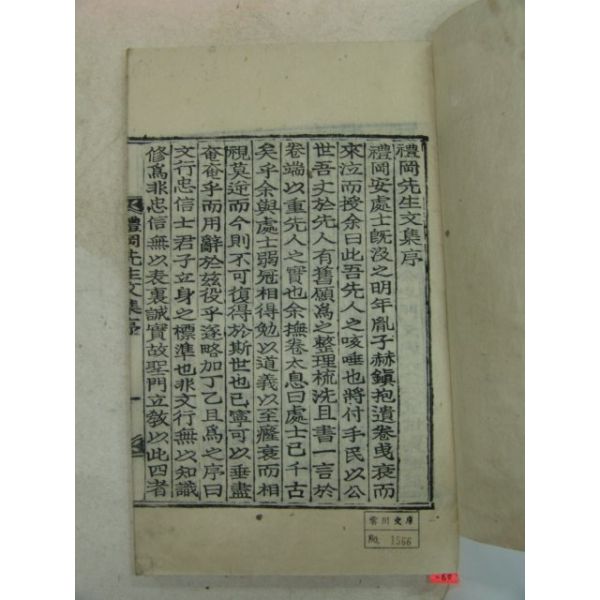 禮岡先生文集序
禮岡安處士旣沒之明年胤子赫鎭抱遺卷曳衰而
來泣而授余曰此吾先人之咳唾也將付手民以公
世吾丈於先人有舊願爲之整理梳洗且書一言於
卷端以重先人之實也余撫卷太息曰處士已千古
矣乎余與處士弱冠相得勉以道義以至癃衰而相
視莫逆而今則不可復得於斯世也已寧可以垂盡
奄奄乎而用辭於玆役乎遂略加丁乙且爲之序曰
文行忠信士君子立身之標準也非文行無以知識
修爲非忠信無以表裏誠實故聖門立敎以此四者
禮岡先生文集序
一
雲川文庫
No. 1566